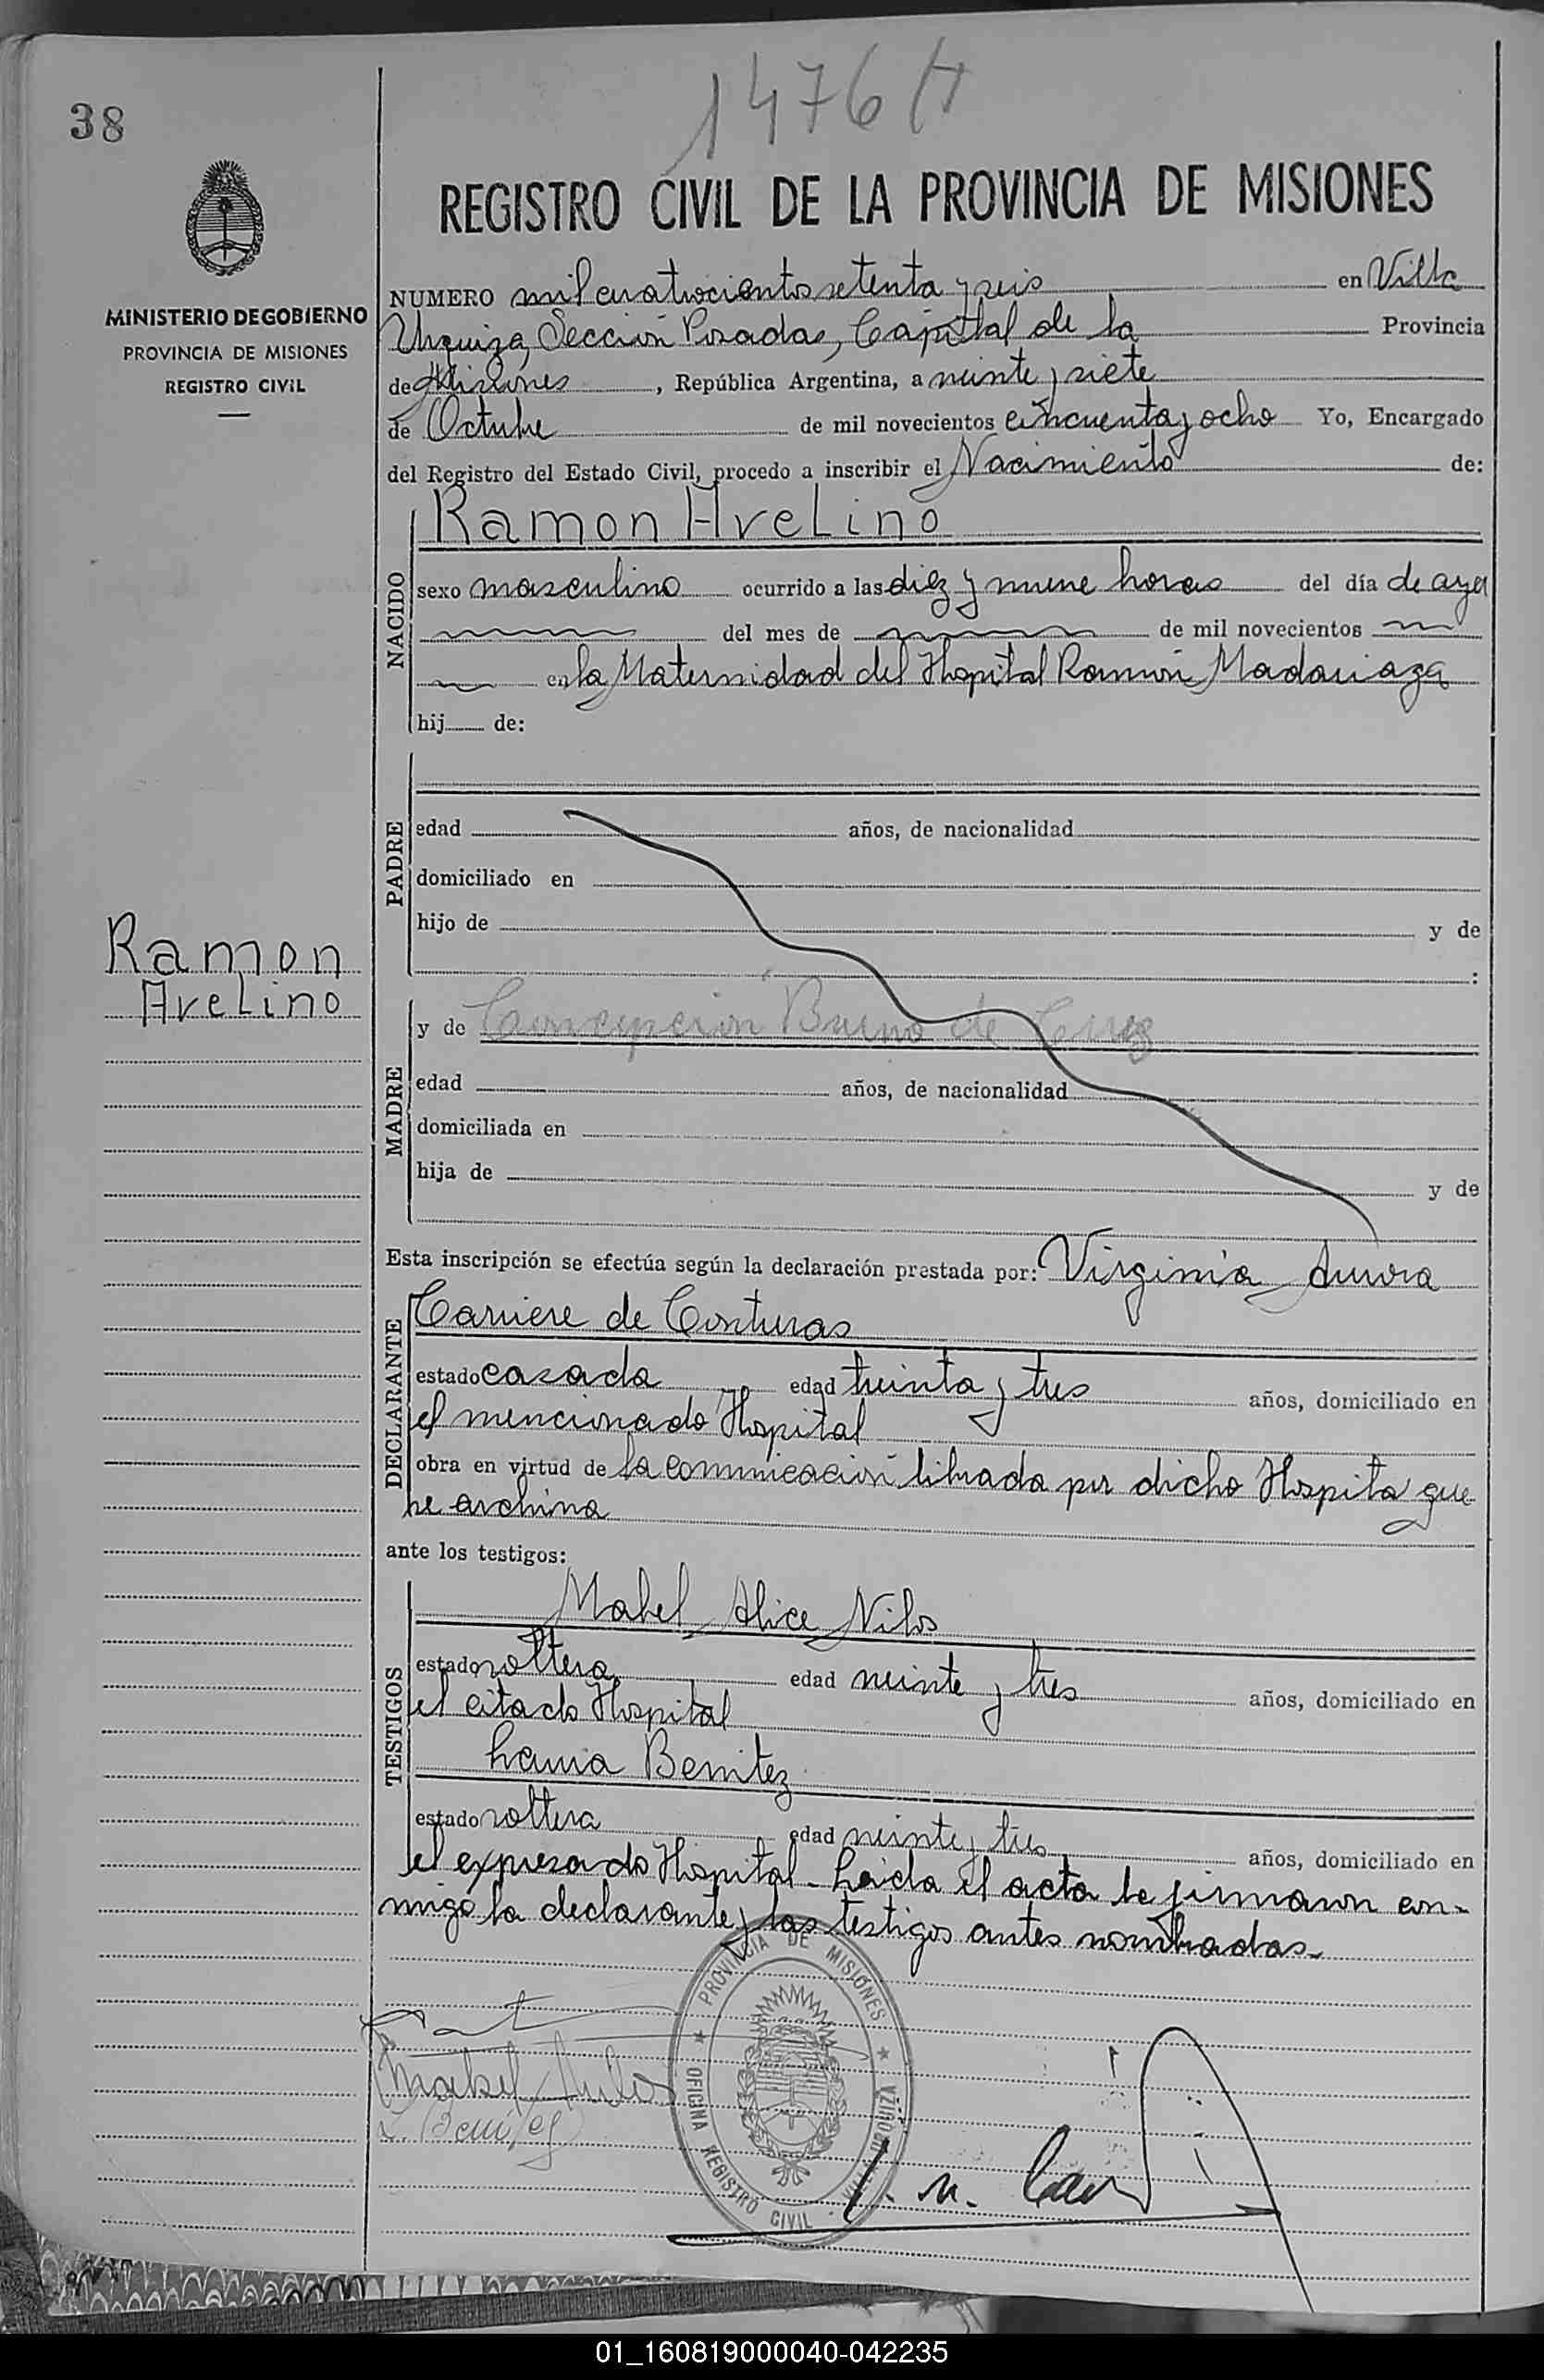 1476 H
38
REGISTRO CIVIL DE LA PROVINCIA DE MISIONES
MINISTERIO DE GOBIERNO
PROVINCIA DE MISIONES
REGISTRO CIVIL
NUMERO mil cuatrocientos setenta y seis en Villa
Urquiza, Sección Posadas, Capital de la Provincia
de Misiones, República Argentina, a veinte y siete
de Octubre de mil novecientos cincuenta y ocho Yo, Encargado
del Registro del Estado Civil, procedo a inscribir el Nacimiento de:
NACIDO
Ramon Avelino
sexo masculino ocurrido a las diez y nueve horas del día de ayer
del mes de de mil novecientos
en la Maternidad del Hospital Ramón Madariaga
hij de:
PADRE
edad años, de nacionalidad
domiciliado en
hijo de y de
:
Ramon
Avelino
MADRE
y de Concepción Bueno de Cruz
edad años, de nacionalidad
domiciliada en
hija de y de
Esta inscripción se efectúa según la declaración prestada por: Virginia Aurora
DECLARANTE
Carriere de Contreras
estado casada edad treinta y tres años, domiciliado en
el mencionado Hospital
obra en virtud de la comunicación librada por dicho Hospita que
se archiva
ante los testigos:
TESTIGOS
Mabel Alice Nilos
estado soltera edad veinte y tres años, domiciliado en
el citado Hospital
Benitez
estado soltera edad veinte y tres años, domiciliado en
el expresado Hospital - Leida el acta la firmaron con-
migo la declarante y las testigos antes nombradas-
PROVINCIA DE MISIONES
OFICINA REGISTRO CIVIL - VILLA URQUIZA
Mabel
L. Benitez
01_160819000040-042235